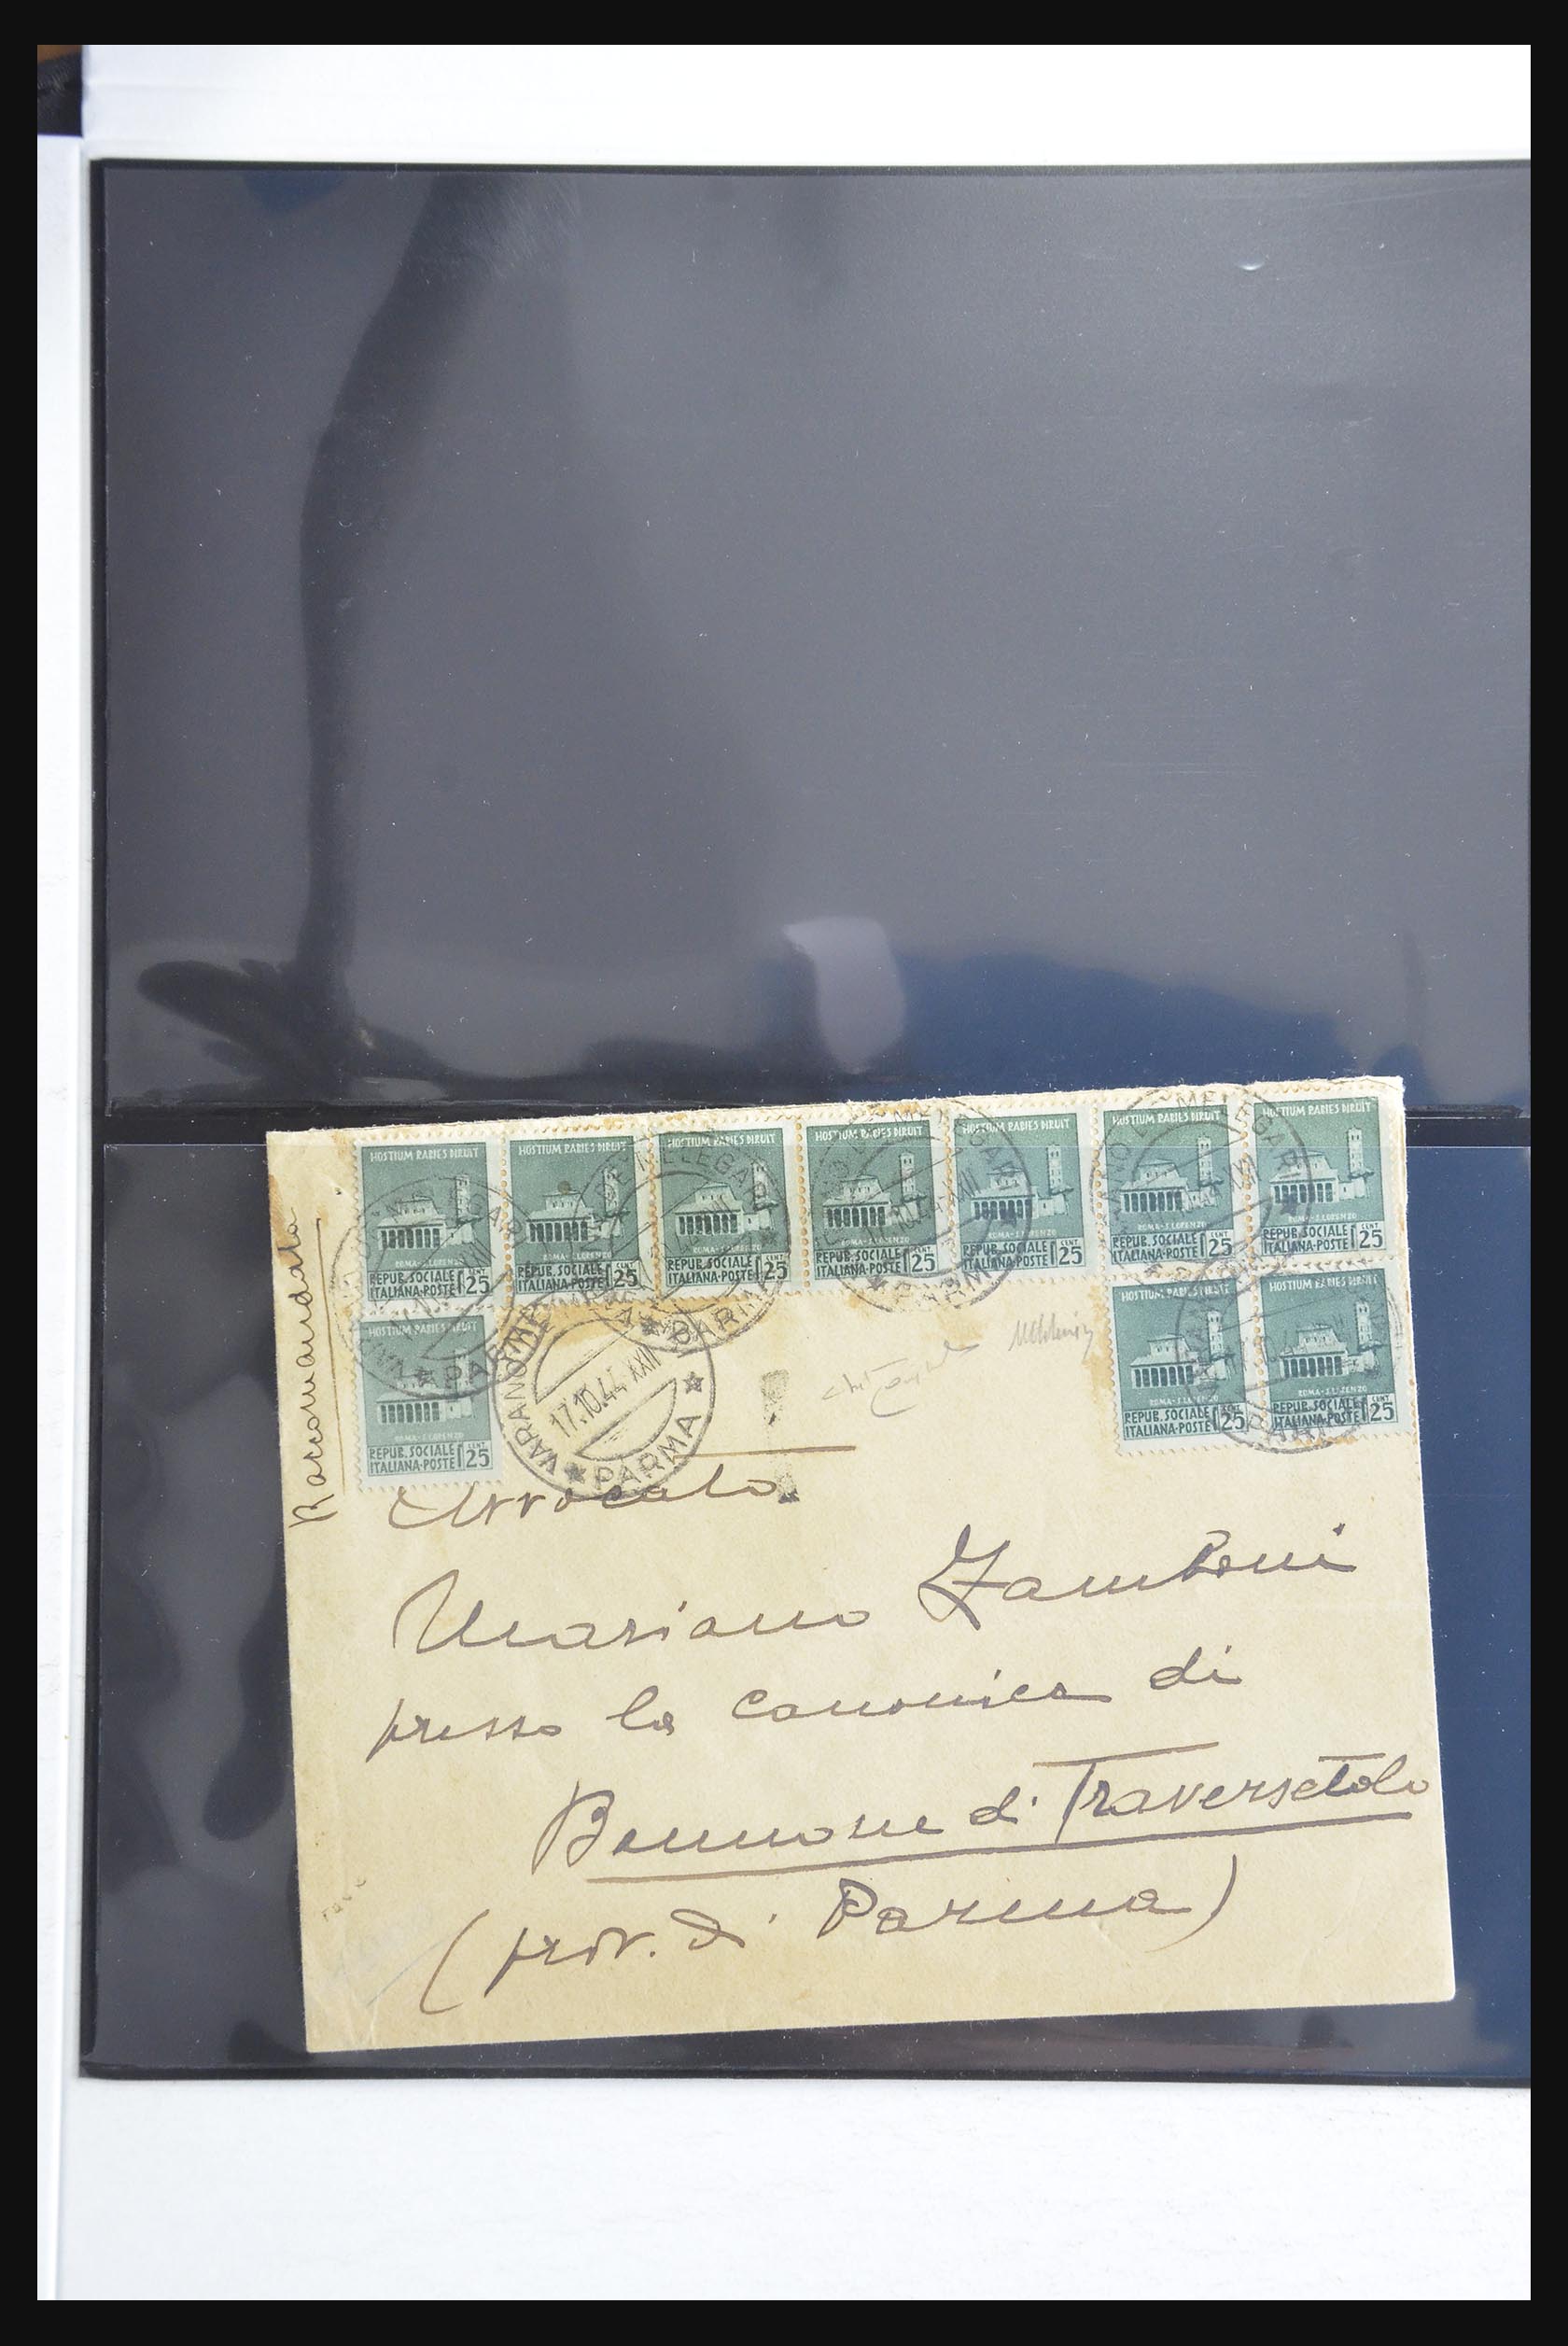 Raccomandata
HOSTIUM RABIES DIRUIT
ROMA-S.LORENZO
REPUB.SOCIALE
ITALIANA-POSTE
CENT
25
HOSTIUM RABIES DIRUIT
ROMA-S.LORENZO
REPUB.SOCIALE
ITALIANA-POSTE
CENT
25
HOSTIUM RABIES DIRUIT
ROMA-S.LORENZO
REPUB.SOCIALE
ITALIANA-POSTE
CENT
25
HOSTIUM RABIES DIRUIT
ROMA-S.LORENZO
REPUB.SOCIALE
ITALIANA-POSTE
CENT
25
HOSTIUM RABIES DIRUIT
ROMA-S.LORENZO
REPUB.SOCIALE
ITALIANA-POSTE
CENT
25
HOSTIUM RABIES DIRUIT
ROMA-S.LORENZO
REPUB.SOCIALE
ITALIANA-POSTE
CENT
25
HOSTIUM RABIES DIRUIT
ROMA-S.LORENZO
REPUB.SOCIALE
ITALIANA-POSTE
CENT
25
HOSTIUM RABIES DIRUIT
ROMA-S.LORENZO
REPUB.SOCIALE
ITALIANA-POSTE
CENT
25
HOSTIUM RABIES DIRUIT
ROMA-S.LORENZO
REPUB.SOCIALE
ITALIANA-POSTE
CENT
25
HOSTIUM RABIES DIRUIT
ROMA-S.LORENZO
REPUB.SOCIALE
ITALIANA-POSTE
CENT
25
VARANO
17.10.44 XXII
PARMA
Avvocato
Mariano Zamboni
presso la canonica di
Bannone di Traversetolo
(prov. di Parma)